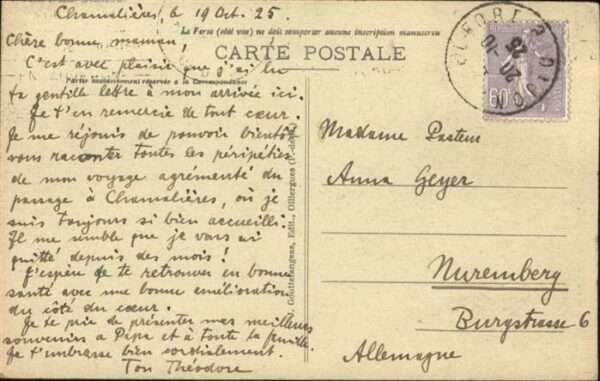 Chamalières, le 19 Oct. 25.
Le Face (côté vue) ne doit comporter aucune inscription manuscrite
CARTE POSTALE
Partie exclusivement réservée à la Correspondance
Chère bonne maman!
C'est avec plaisir que j'ai lu
ta gentille lettre à mon arrivée ici.
Je t'en remercie de tout cœur.
Je me réjouis de pouvoir bientôt
vous raconter toutes les péripéties
de mon voyage agrémenté du
passage à Chamalières, où je
suis toujours si bien accueilli.
Il me semble que je vous ai
quitté depuis des mois!
J'espère de te retrouver en bonne
santé avec une bonne amélioration
du côté du cœur.
Je te prie de présenter mes meilleurs
souvenirs à Papa et à toute la famille.
Je t'embrasse bien cordialement.
Ton Théodore
Edit., Olliergues
DIJON
20 -10
25
60
Madame Pasteur
Anna Geyer
Nuremberg
Burgstrasse 6
Allemagne